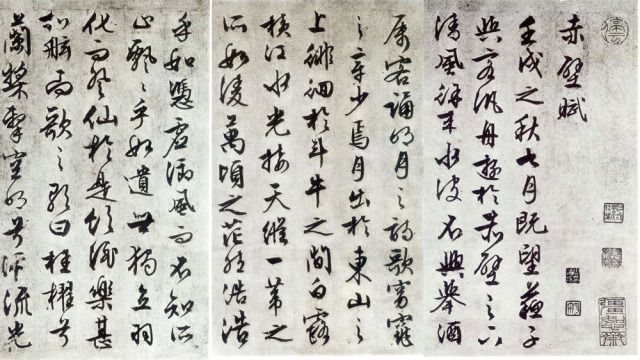 赤壁賦
壬戌之秋七月既望蘇子
與客汎舟遊於赤壁之下
清風徐来水波不興舉酒
属客誦明月之詩歌窈窕
之章少焉月出於東山之
上徘徊於斗牛之間白露
横江水光接天縱一葦之
所如凌萬頃之茫然浩浩
乎如憑虚御風而不知所
止飄〻乎如遺世獨立羽
化而登仙於是飲酒樂甚
扣舷而歌之歌曰桂櫂兮
蘭槳擊空明兮泝流光